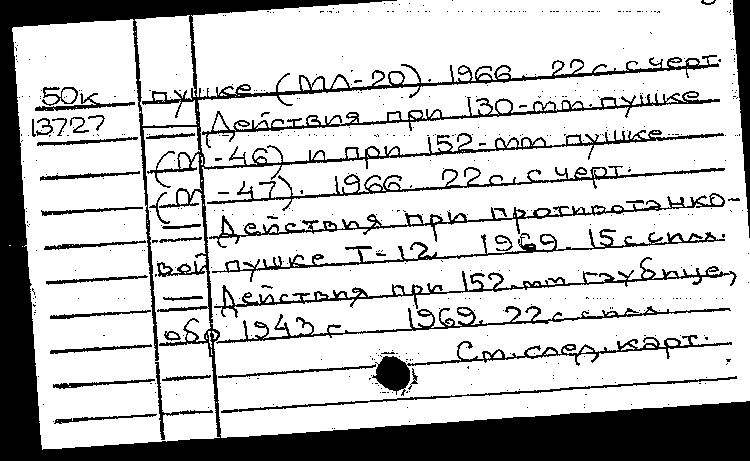 50к пушке (МЛ-20). 1966. 22 с. с черт.
13727 — Действия при 130-mm. пушке
(М-46) и при 152-mm пушке
(М-47). 1966. 22 с. с черт.
— Действия при противотанко-
вой пушке Т-12. 1969. 15 с. с илл.
— Действия при 152-mm гаубице,
обр 1943 г. 1969. 22 с. с илл.
См. след. карт.